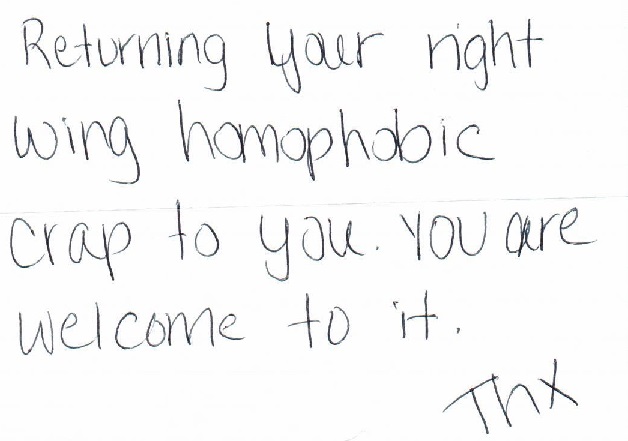 Returning your right
wing homophobic
crap to you. You are
welcome to it.
Thx